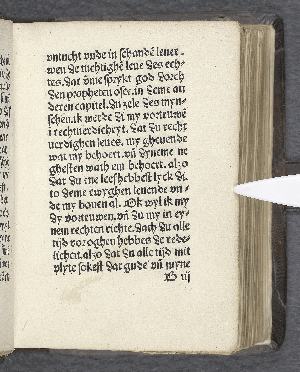 vntucht vnde in schandē leuer.
wen de tuchtighē leue des ech-
tes. dat vme sprykt god dorch
den propheten osee. in deme an
deren capitel. Du zele des myn-
schen. ik werde di my vortruwē
i rechtuerdicheyt. dat du recht
uerdighen leues. my gheuende
wat my behoert. vn dyneme ne
ghesten wath em behoert. also
dat du em leefhebbest lyck di.
to deme ewyghen leuende vn-
de my bouen al. Ok wyl ik my
dy vortruwen. vn du my in ey-
nem rechten richte. Dach du alle
tijd vor oghen hebbes de rede-
licheit. also dat du alle tijd mit
vlyte sokest dat gude vn myne
B iij